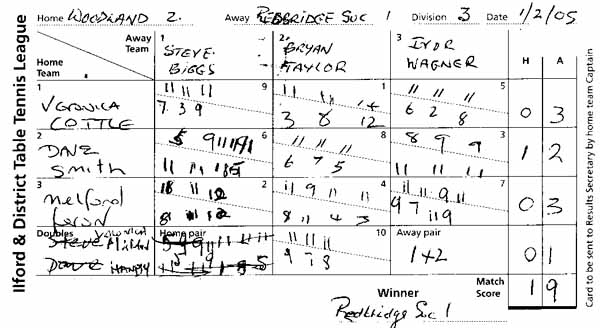 Ilford & District Table Tennis League
Home WOODLAND 2. Away REDBRIDGE SUC 1 Division 3 Date 1/2/05
Away Team
Home Team
1 STEVE BIGGS
2 BRYAN TAYLOR
3 IVOR WAGNER
H A
1 VERONICA COTTLE
9 11 11 11
7 3 9
1 11 11 14
3 8 12
5 11 11 11
6 2 8
0 3
2 DAVE SMITH
6
8 11 11 11
6 7 5
3 8 9 9
11 11 11
1 2
3
2
4 11 9 11 11
8 11 4 3
7
0 3
Doubles Home pair
10 11 11 11
9 7 8
Away pair
1+2
0 1
Winner Match Score 1 9
Redbridge Suc 1
Card to be sent to Results Secretary by home team Captain